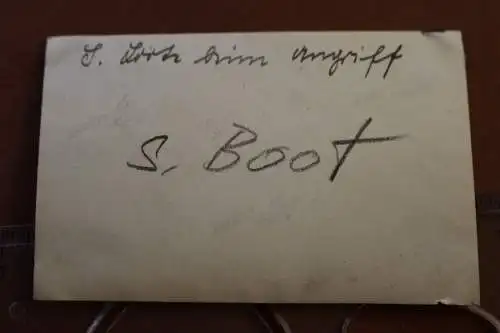 S. Boote beim Angriff
S. Boot